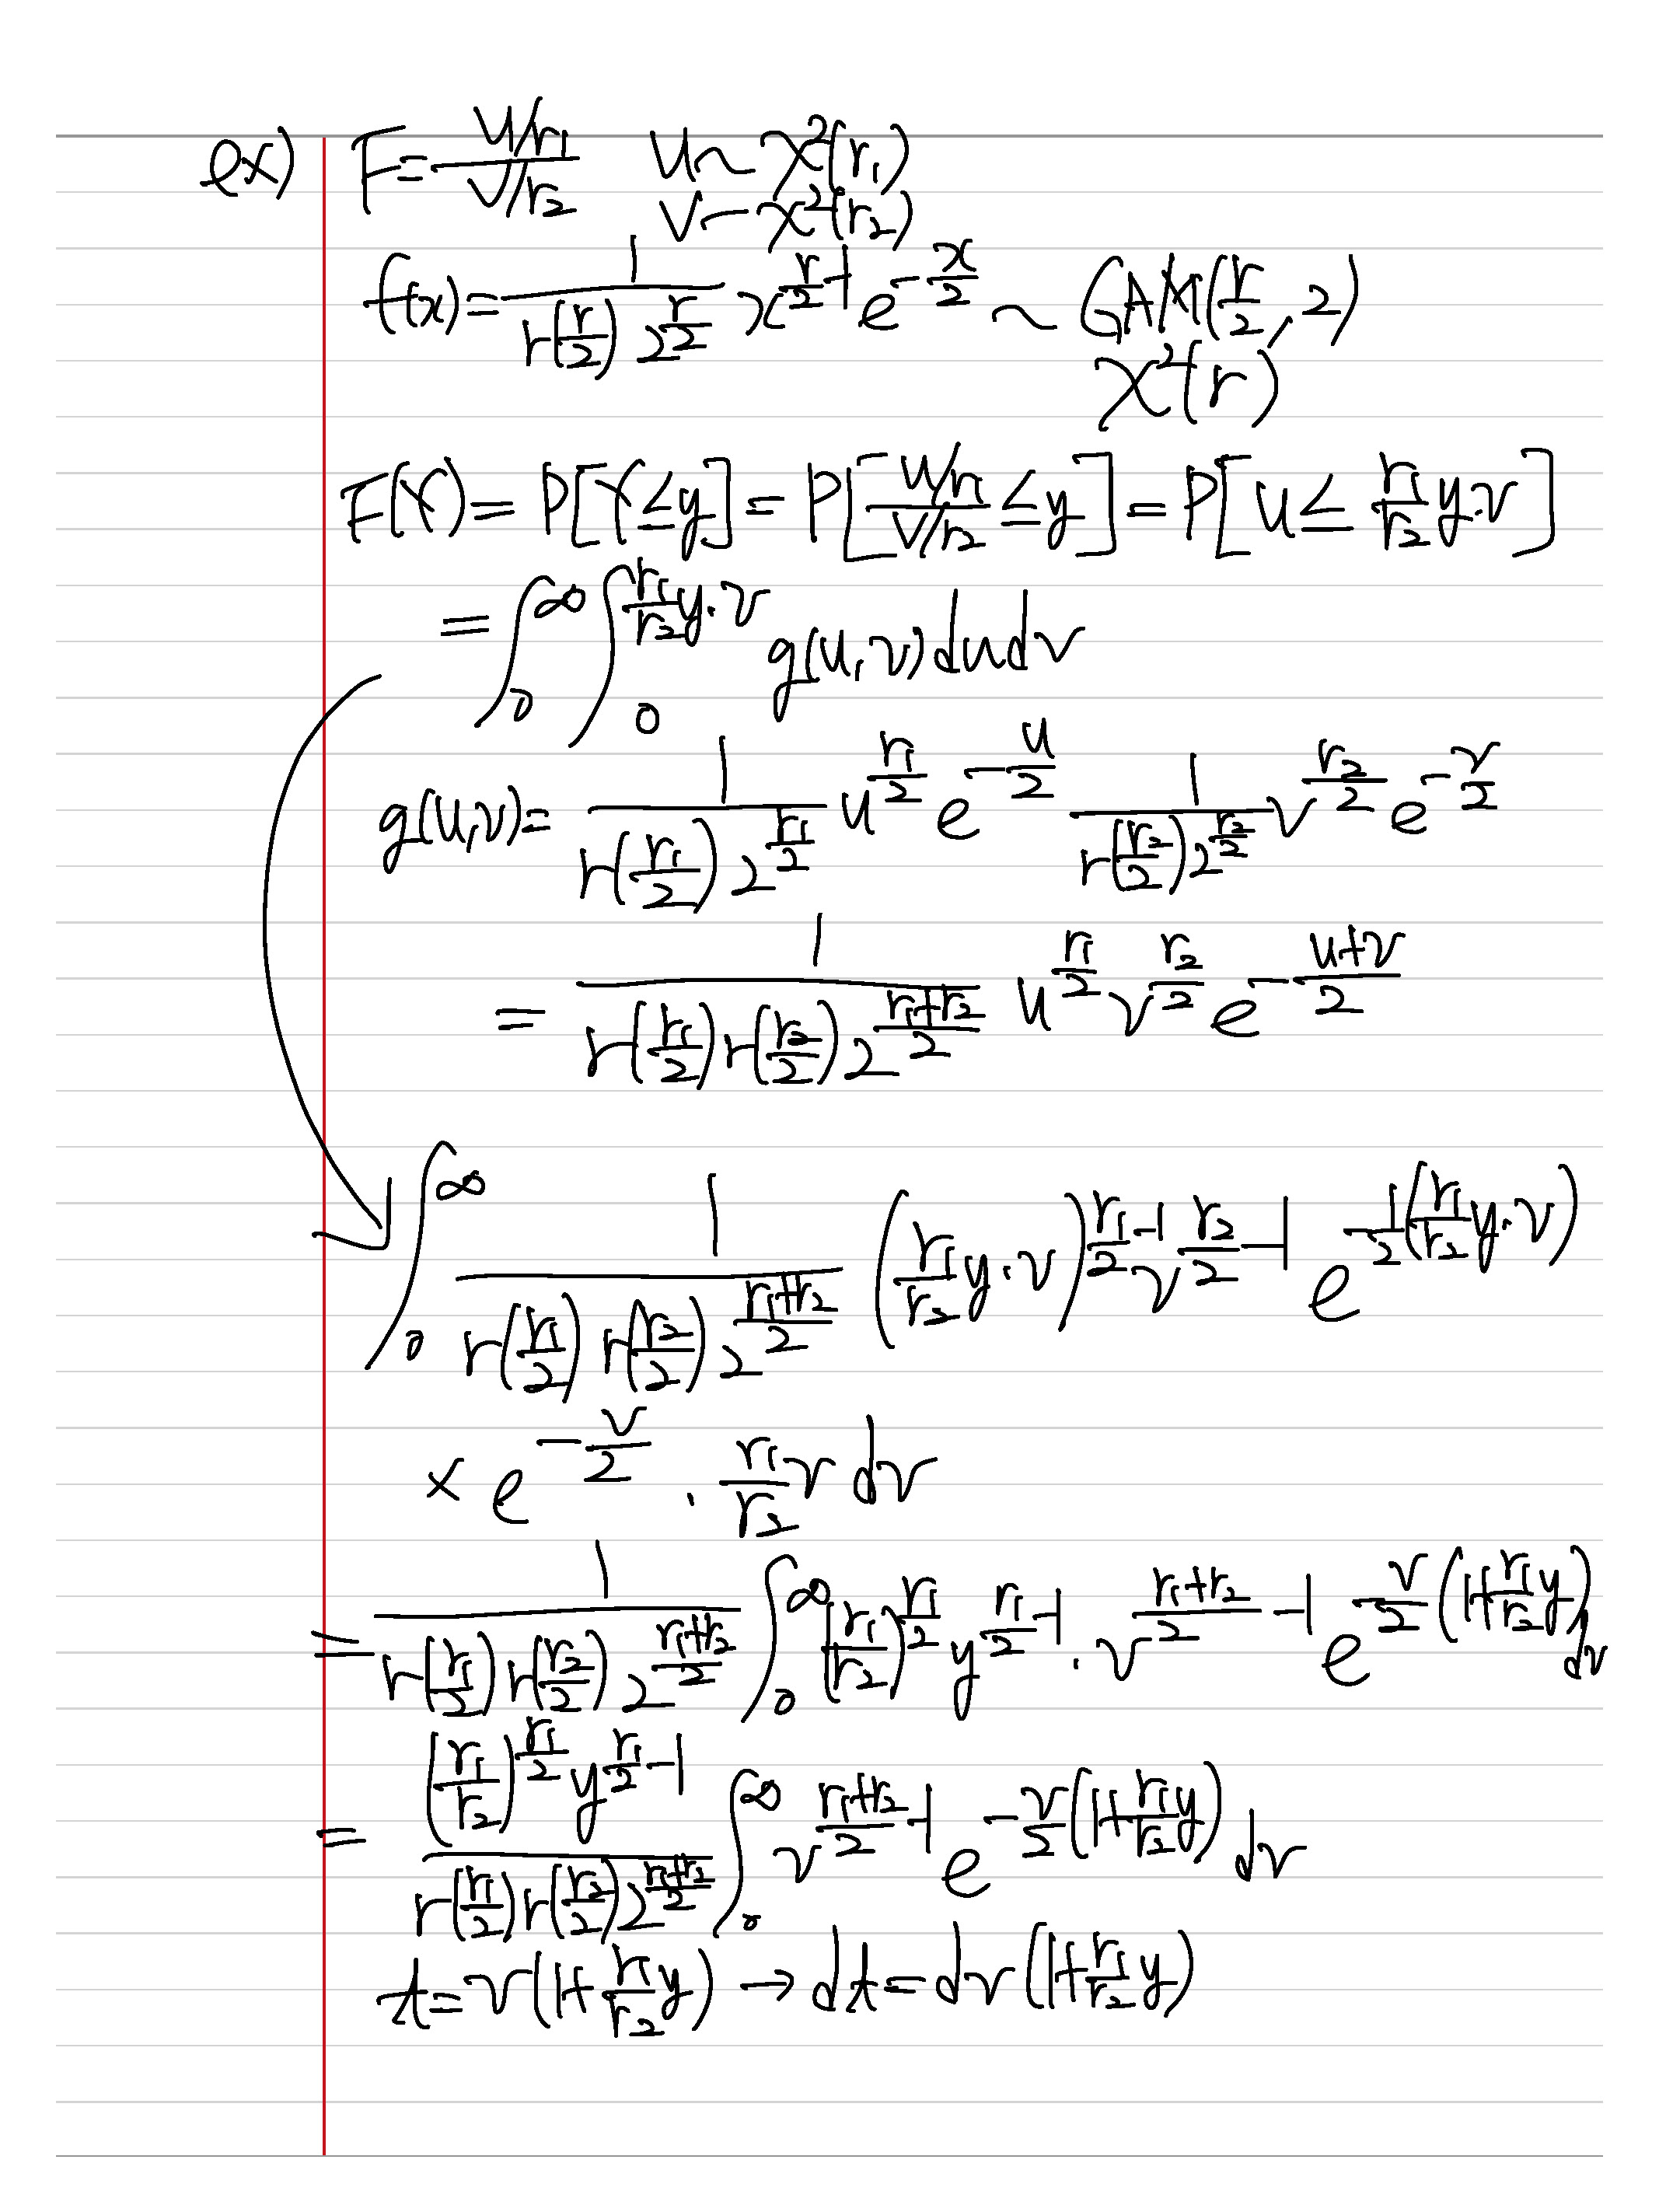 ex) F = (U/r₁)/(V/r₂) U ~ χ²(r₁)
V ~ χ²(r₂)
f(x) = 1/(Γ(r/2) 2^(r/2)) x^(r/2 - 1) e^(-x/2) ~ GAM(r/2, 2)
χ²(r)
F(Y) = P[Y ≤ y] = P[(U/r₁)/(V/r₂) ≤ y] = P[U ≤ (r₁/r₂) y·v]
= ∫₀^∞ ∫₀^((r₁/r₂) y·v) g(u, v) du dv
g(u, v) = 1/(Γ(r₁/2) 2^(r₁/2)) u^(r₁/2) e^(-u/2) 1/(Γ(r₂/2) 2^(r₂/2)) v^(r₂/2) e^(-v/2)
= 1/(Γ(r₁/2) Γ(r₂/2) 2^((r₁+r₂)/2)) u^(r₁/2) v^(r₂/2) e^(-(u+v)/2)
∫₀^∞ 1/(Γ(r₁/2) Γ(r₂/2) 2^((r₁+r₂)/2)) ((r₁/r₂) y·v)^(r₁/2 - 1) v^(r₂/2 - 1) e^(-1/2 ((r₁/r₂) y·v))
× e^(-v/2) · (r₁/r₂) v dv
= 1/(Γ(r₁/2) Γ(r₂/2) 2^((r₁+r₂)/2)) ∫₀^∞ (r₁/r₂)^(r₁/2) y^(r₁/2 - 1) · v^((r₁+r₂)/2 - 1) e^(-v/2 (1 + (r₁/r₂) y)) dv
= ((r₁/r₂)^(r₁/2) y^(r₁/2 - 1))/(Γ(r₁/2) Γ(r₂/2) 2^((r₁+r₂)/2)) ∫₀^∞ v^((r₁+r₂)/2 - 1) e^(-v/2 (1 + (r₁/r₂) y)) dv
t = v(1 + (r₁/r₂) y) → dt = dv(1 + (r₁/r₂) y)